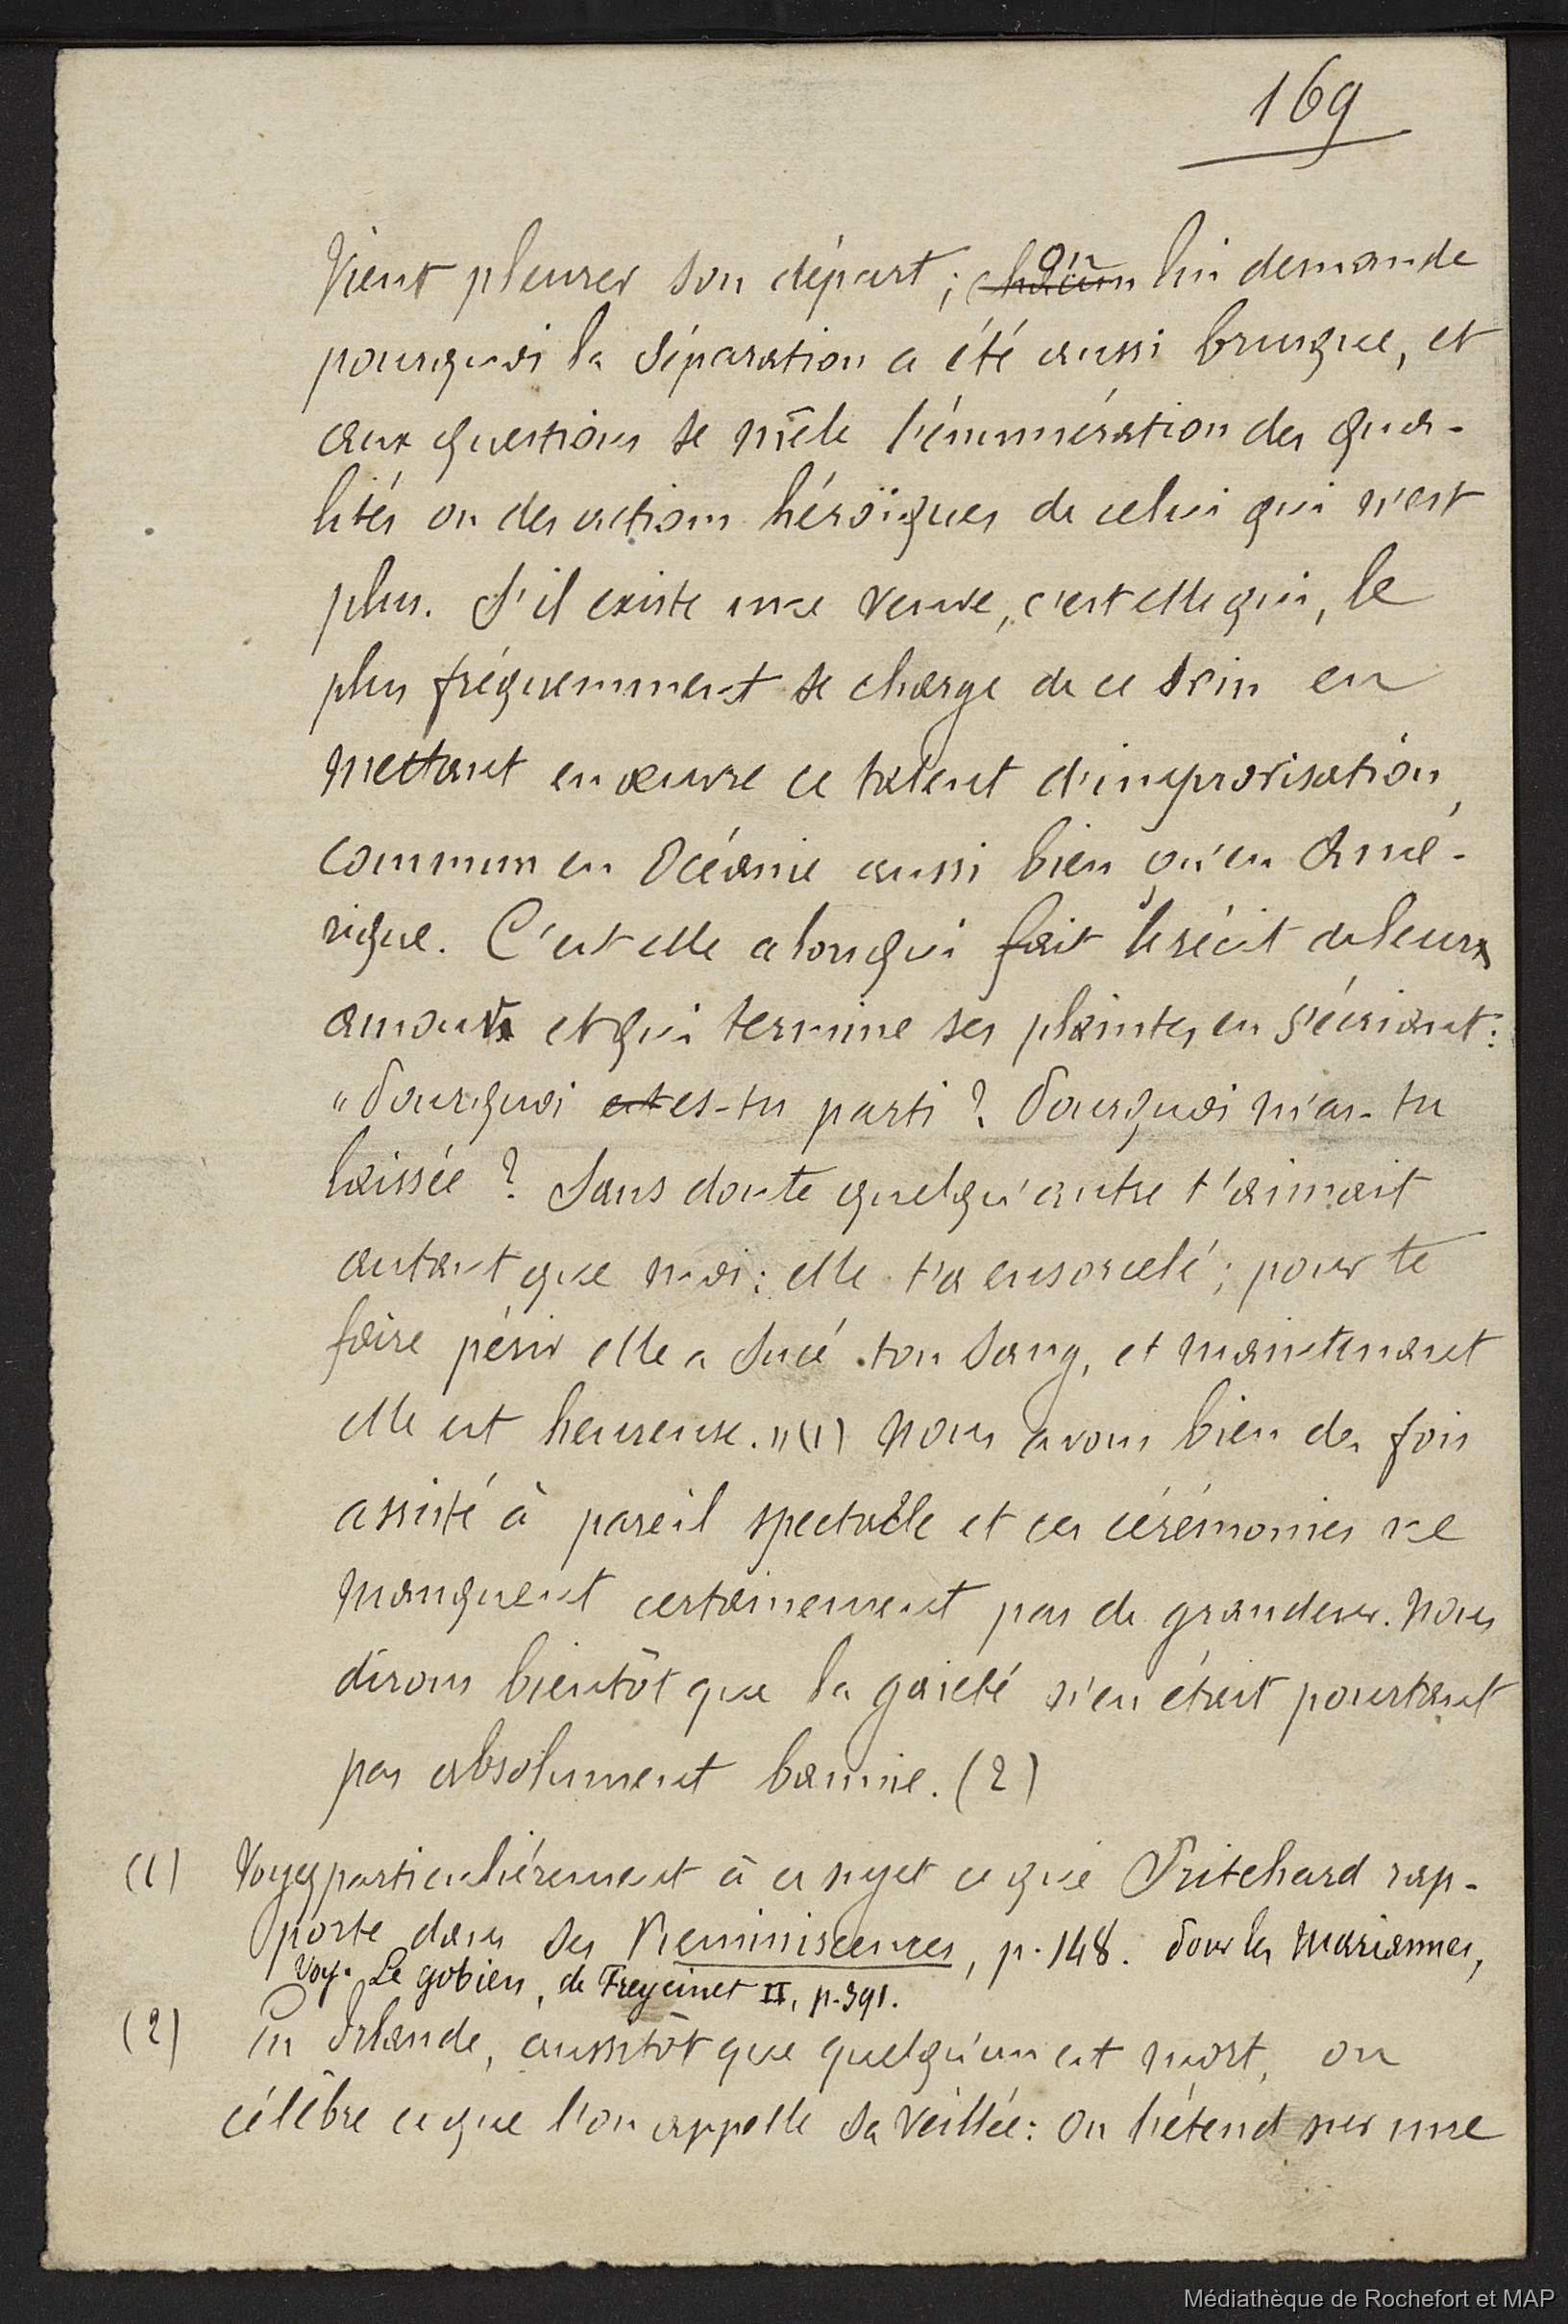 169
vient pleurer son départ ; chacun on lui demande
pourquoi la séparation a été aussi brusque, et
aux questions se mêle l'énumération des qua-
lités ou des actions héroïques de celui qui n'est
plus. S'il existe une veuve, c'est elle qui, le
plus fréquemment se charge de ce soin en
mettant en œuvre ce talent d'improvisation,
commun en Océanie aussi bien qu'en Amé-
rique. C'est elle alors qui fait le récit de leurs
amours et qui termine ses plaintes en s'écriant :
"Pourquoi es-tu parti ? Pourquoi m'as-tu
laissée ? Sans doute quelqu'autre t'aimait
autant que moi : elle t'a ensorcelé ; pour te
faire périr elle a sucé ton sang, et maintenant
elle est heureuse." (1) Nous avons bien des fois
assisté à pareil spectacle et ces cérémonies ne
manquent certainement pas de grandeur. Nous
dirons bientôt que la gaieté n'en était pourtant
pas absolument bannie. (2)
(1) Voyez particulièrement à ce sujet ce que Pritchard rap-
porte dans ses Reminiscences, p. 148. Pour les Mariannes,
Voy. Le gobien, de Freycinet II, p. 391.
(2) En Irlande, aussitôt que quelqu'un est mort, on
célèbre ce que l'on appelle sa veillée : On l'étend sur une
Médiathèque de Rochefort et MAP